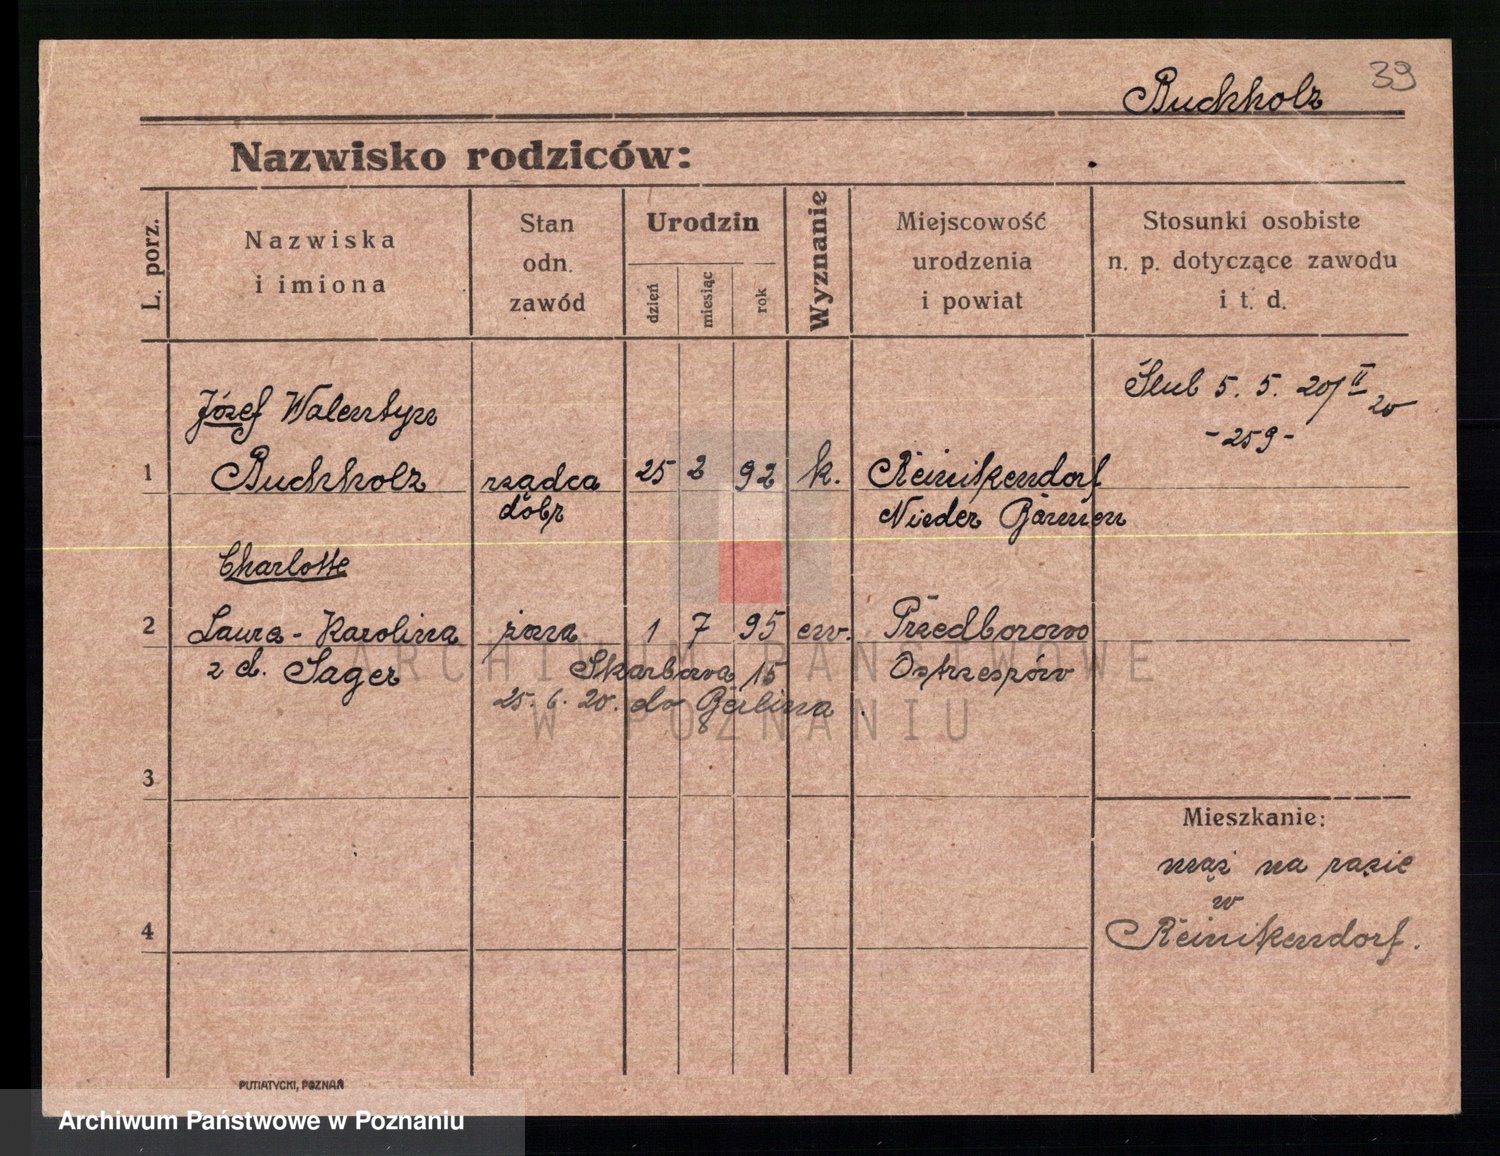 39
Buckholz
Nazwisko rodziców:
L. porz.
Nazwiska
i imiona
Stan
odn.
zawód
Urodzin
dzień
miesiąc
rok
Wyznanie
Miejscowość
urodzenia
i powiat
Stosunki osobiste
n. p. dotyczące zawodu
i t. d.
Ślub 5. 5. 20/II 20
-259-
Józef Walentyn
1 Buckholz rządca 25 2 92 k. Reinikendorf
dóbr Nieder Barnien
Charlotte
2 Laura-Karolina żona 1 7 95 ew. Przedborowo
z d. Sager Skarbowa 15 Ostrzeszów
25. 6. 20. do Berlina
3
Mieszkanie:
mąż na razie
w
4 Reinikendorf.
ARCHIWUM PAŃSTWOWE
W POZNANIU
PUTIATYCKI, POZNAŃ
Archiwum Państwowe w Poznaniu